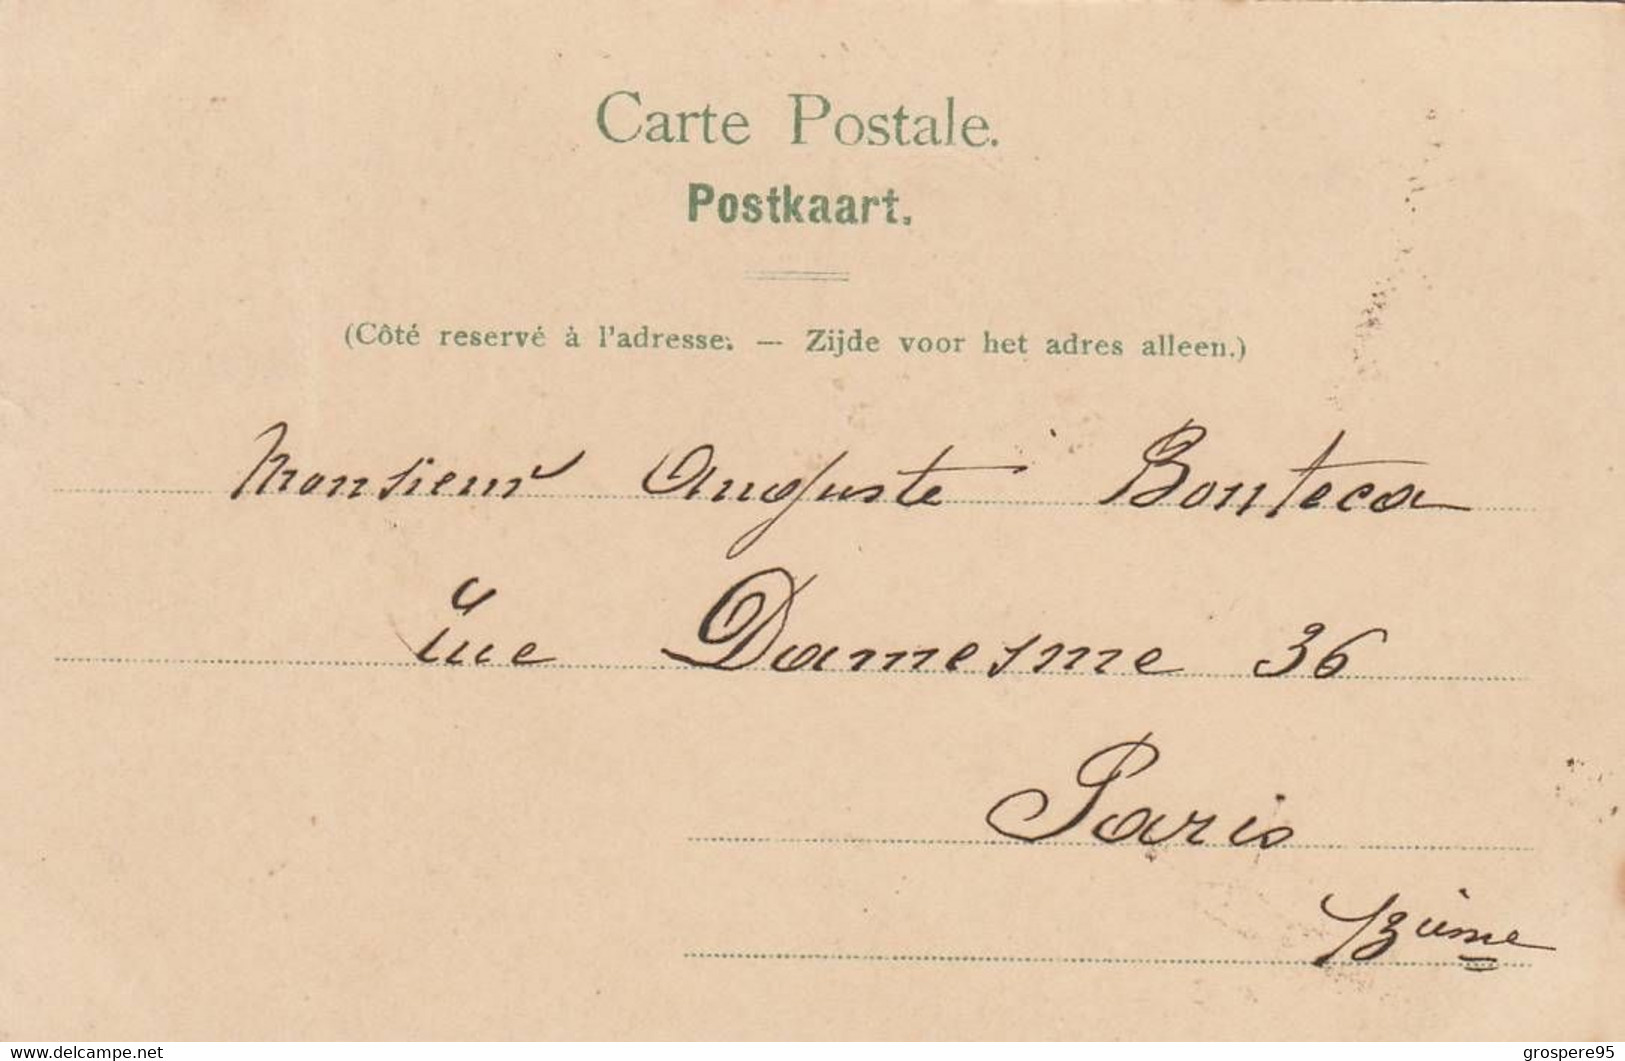 Carte Postale.
Postkaart.
(Côté reservé à l'adresse. — Zijde voor het adres alleen.)
Monsieur Auguste Bonteca
rue Damesme 36
Paris
13ième
www.delcampe.net
grospere95